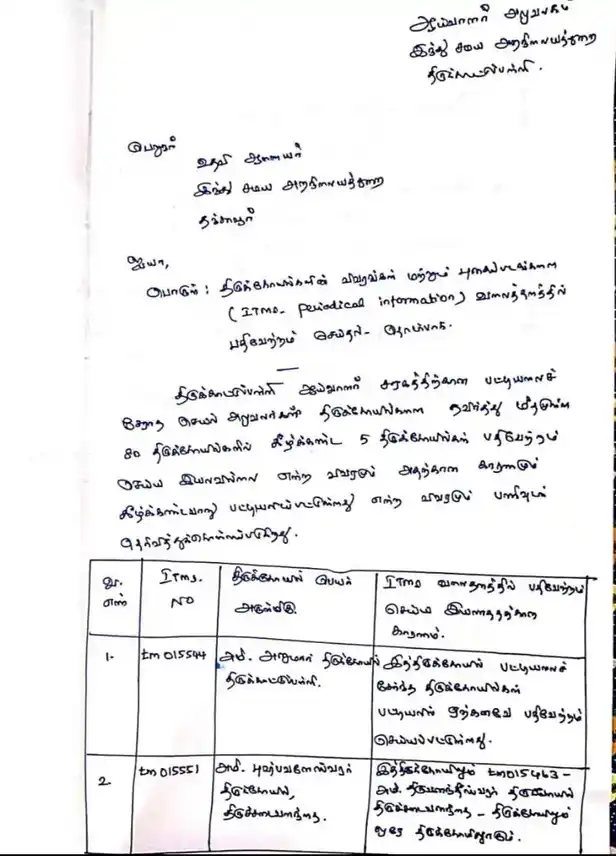 ஆய்வாளர் அலுவலகம்
இந்து சமய அறநிலையத்துறை
திருக்காட்டுப்பள்ளி.
பெறுநர்
உதவி ஆணையர்
இந்து சமய அறநிலையத்துறை
தஞ்சாவூர்
ஐயா,
பொருள் : திருக்கோயில்களின் விவரங்கள் மற்றும் புகைப்படங்களை
(ITMS- Periodical information) வலைத்தளத்தில்
பதிவேற்றம் செய்தல் - தொடர்பாக.
திருக்காட்டுப்பள்ளி ஆய்வாளர் சரகத்திற்கான பட்டியலைச்
சேராத செயல் அலுவலர்கள் திருக்கோயில்களை தவிர்த்து மீதமுள்ள
80 திருக்கோயில்களில் கீழ்க்கண்ட 5 திருக்கோயில்கள் பதிவேற்றம்
செய்ய இயலவில்லை என்ற விவரமும் அதற்கான காரணமும்
கீழ்க்கண்டவாறு பட்டியலிடப்பட்டுள்ளது என்ற விவரமும் பணிவுடன்
தெரிவித்துக்கொள்ளப்படுகிறது.
வ.எண்
ITMS. NO
திருக்கோயில் பெயர்
அருள்மிகு.
ITMS வலைதளத்தில் பதிவேற்றம்
செய்ய இயலாததற்கான
காரணம்.
1.
tm 015544
அமி. அனுமார் திருக்கோயில்
திருக்காட்டுப்பள்ளி.
இத்திருக்கோயில் பட்டியலைச்
சேர்ந்த திருக்கோயில்கள்
பட்டியலில் ஏற்கனவே பதிவேற்றம்
செய்யப்பட்டுள்ளது.
2
tm 015551
அமி. புஷ்பவனேஸ்வரர்
திருக்கோயில்,
இத்திருக்கோயிலும் tm015463 -
ஒரே திருக்கோயிலாகும்.